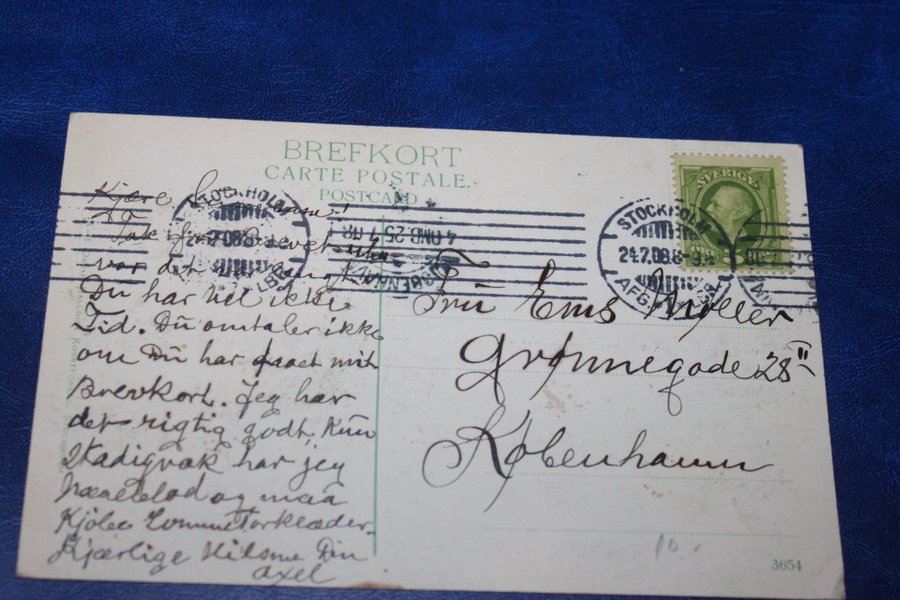 BREFKORT
CARTE POSTALE.
POSTCARD
SVERIGE
STOCKHOLM
24.7.08
AFG.
STOCKHOLM
KJØBENHAVN
4 OMB 25.7.08
Kjære
Tak for Brevet
var det
Du har vel ikke
Tid. Du omtaler ikke
om Du har faaet mit
Brevkort. Jeg har
det rigtig godt, kun
stadigvæk har jeg
og maa
Kjøbe Lommetørklæder.
Kjærlige Hilsner Din
Axel
Fru Ems Møller
Grønnegade 28 II
København
10.
3654